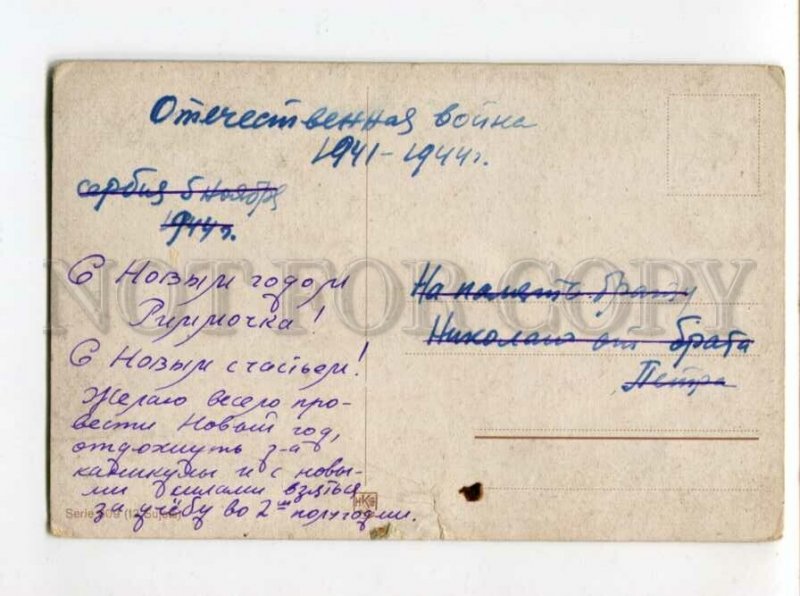 Отечественная война
1941-1944г.
сербия 5 ноября
1944г.
С Новым годом
Риммочка!
С Новым счастьем!
Желаю весело про-
вести Новый год,
отдохнуть з-а
каникулы и с новы-
ми силами взяться
за учёбу во 2ом полугодии.
На память брату
Николаю от брата
Петра
NOT FOR COPY
Serie
HKB